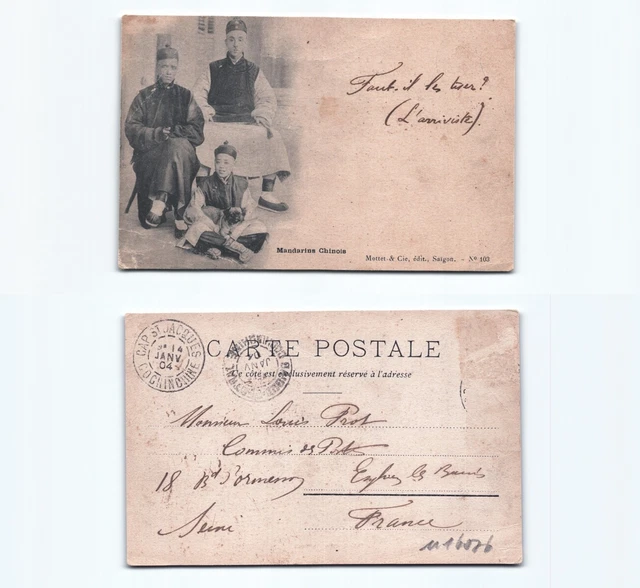 Faut-il les tuer?
(L'arriviste).
Mandarins Chinois
Mottet & Cie, édit., Saigon. - No 103
CARTE POSTALE
Ce côté est exclusivement réservé à l'adresse
CAP ST JACQUES
14
JANV
04
COCHINCHINE
JANV
Monsieur Louis Prot
Commis des Postes
18 Bd d'Ormesson Enghien les Bains
Seine France